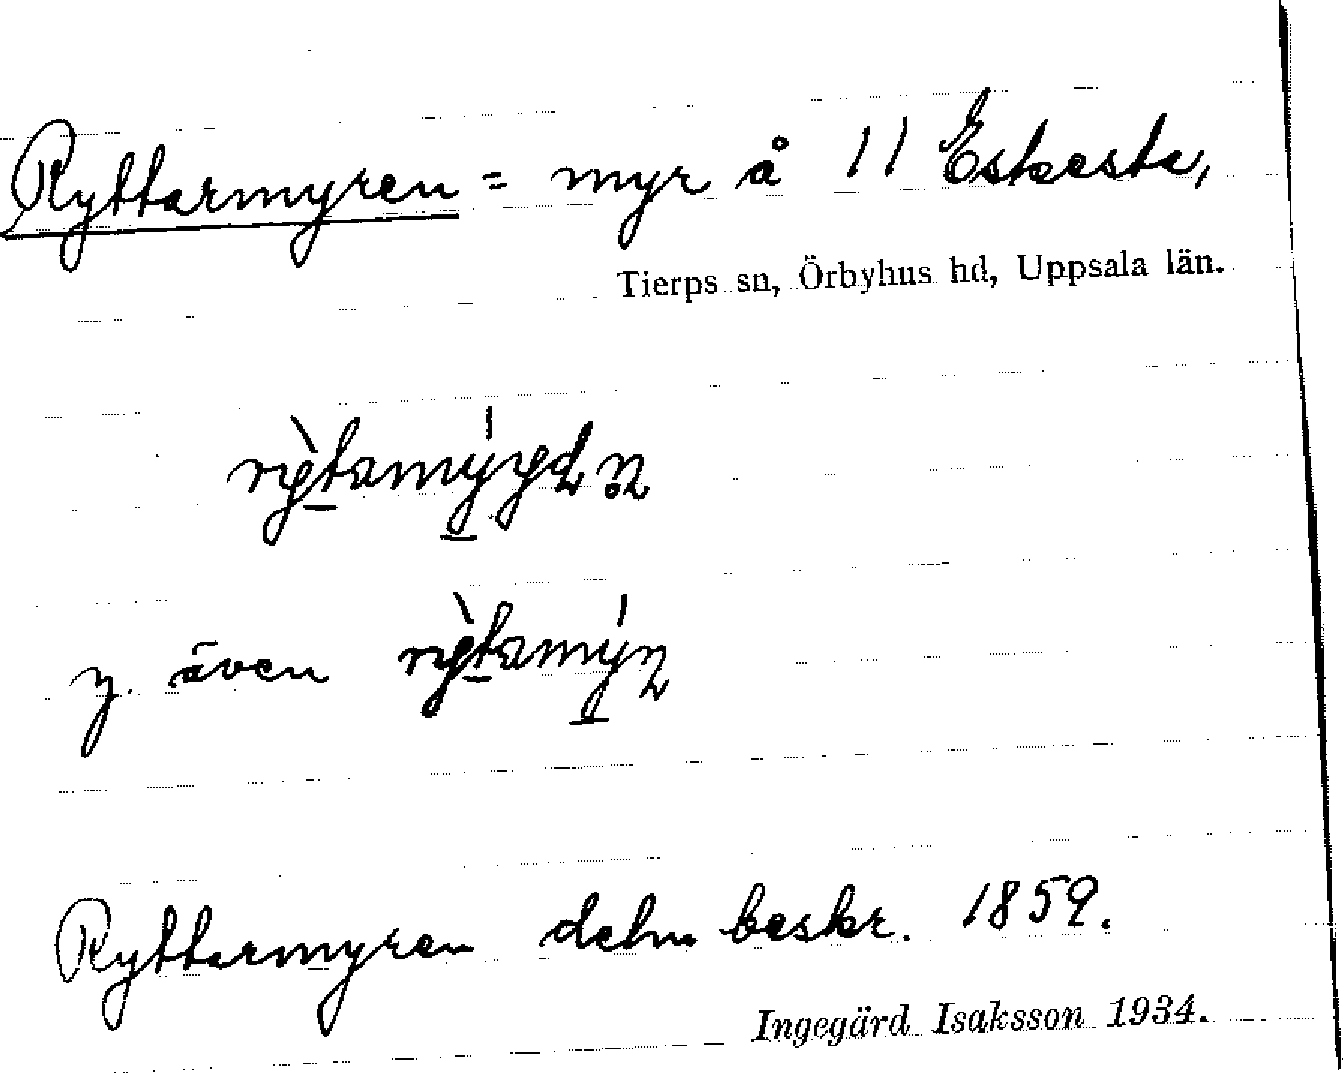 Ryttarmyren = myr å 11 Eskesta,
Tierps sn, Örbyhus hd, Uppsala län.
y. även
Ryttarmyren deln beskr. 1859.
Ingegärd Isaksson 1934.